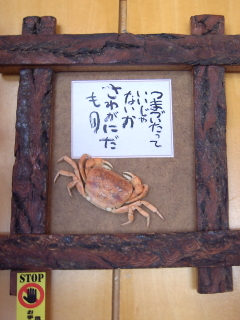 つまづいたって
いいじゃ
ないか
さわがにだ
もの
STOP